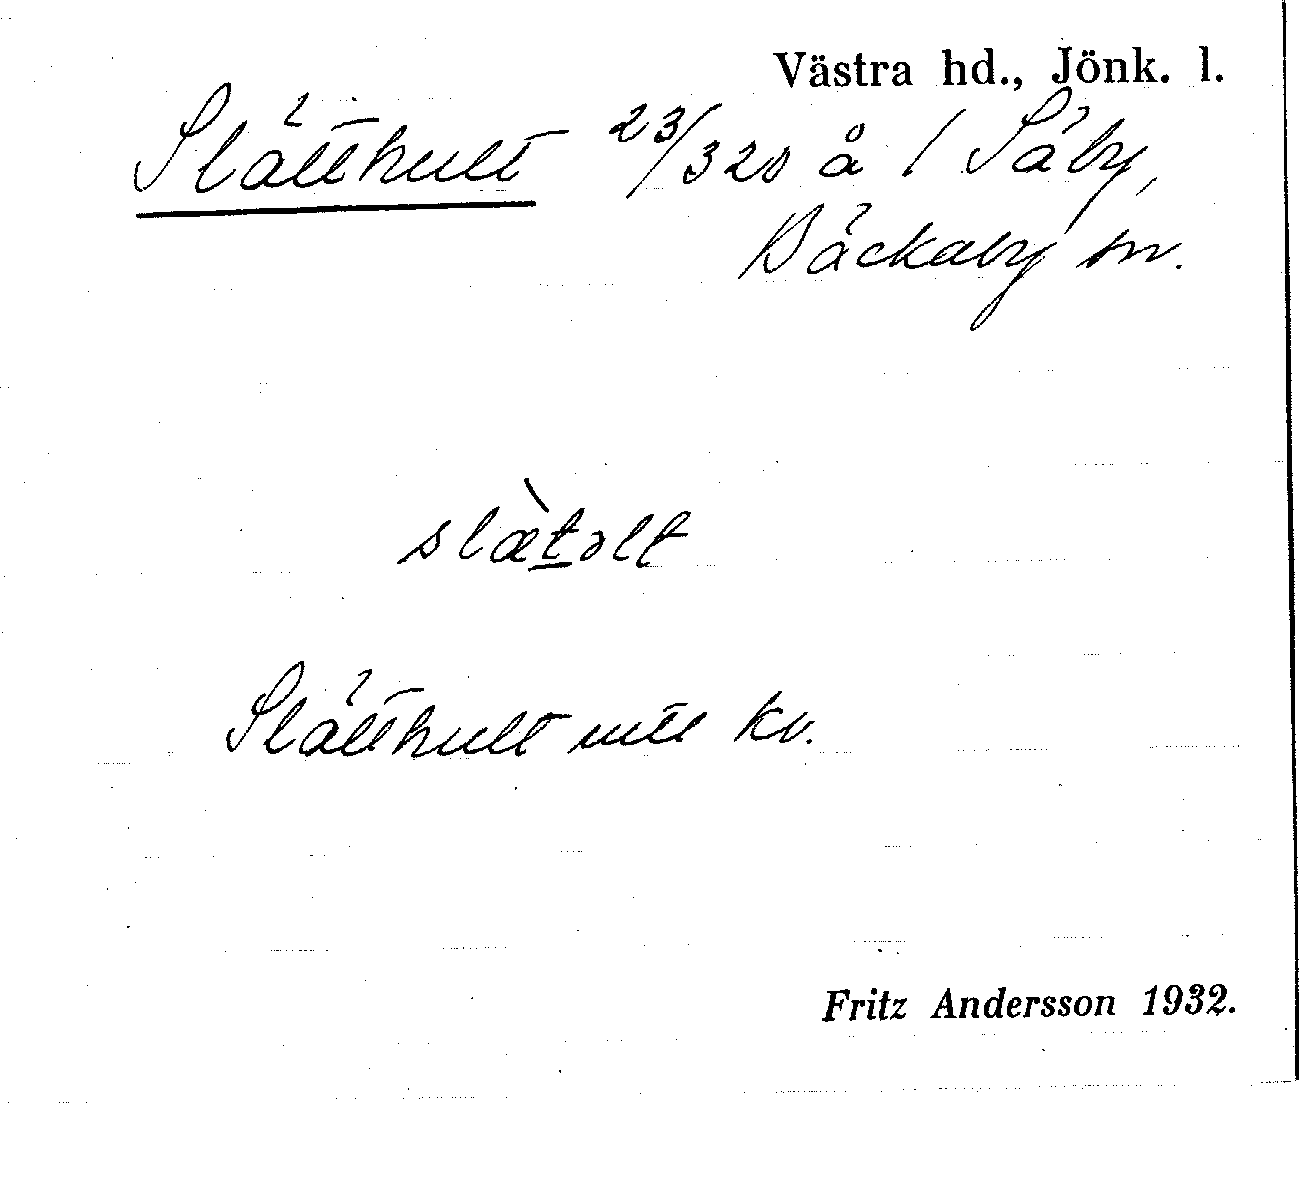 Västra hd., Jönk. l.
Slätthult 23/320 å 1 Säby,
Bäckaby sn.
slæ̀t̲əlt
Slätthult mtl kv.
Fritz Andersson 1932.